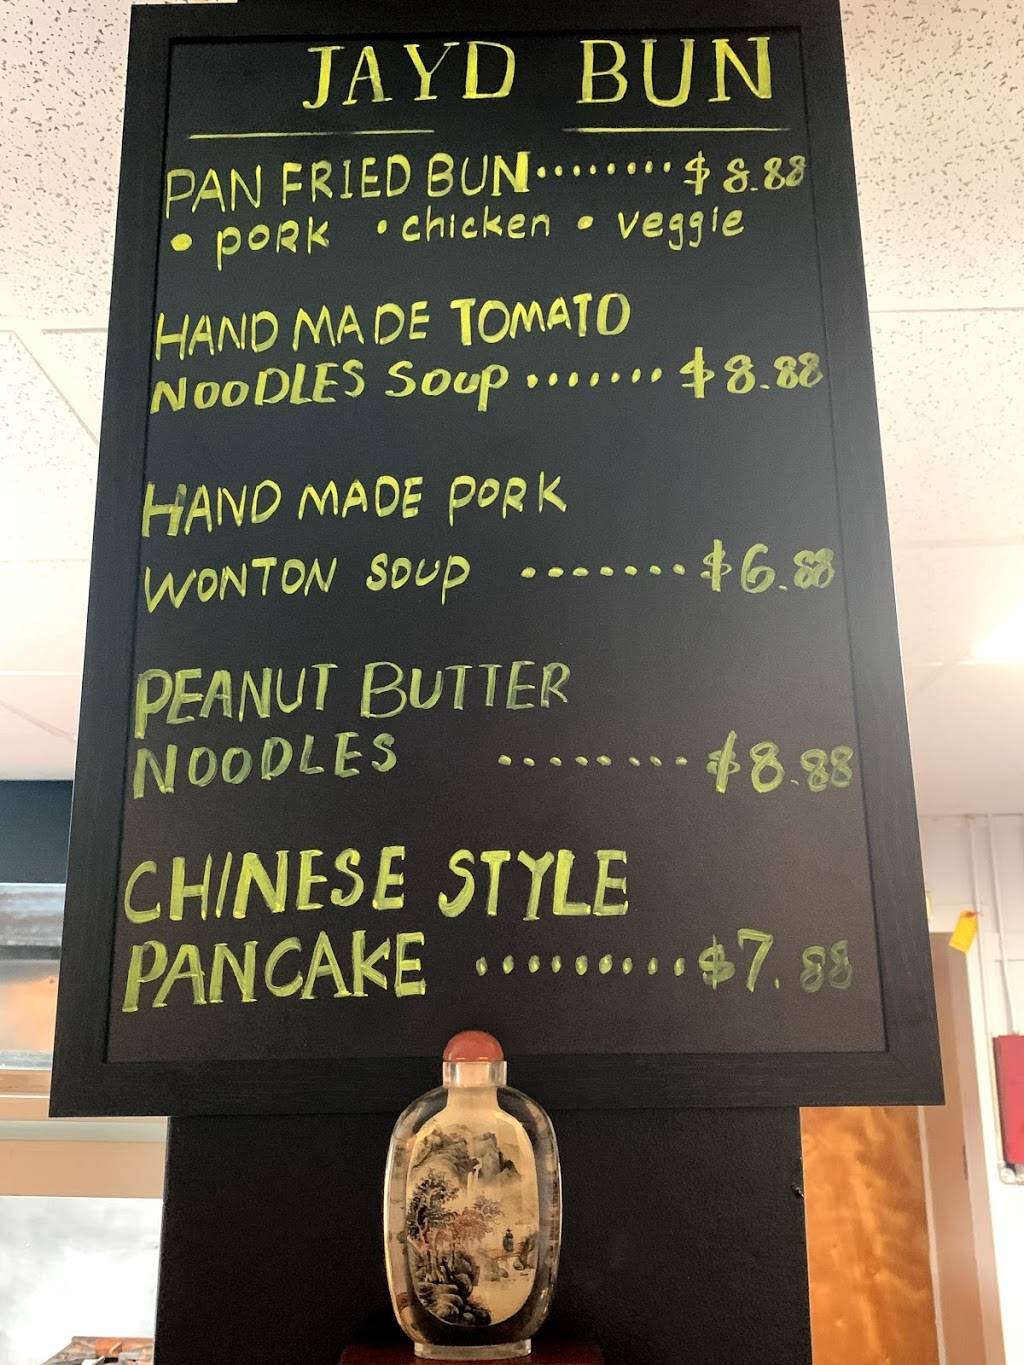 JAYD BUN
PAN FRIED BUN········$8.88
• pORK • chicken • veggie
HAND MADE TOMATO
NOODLES SOUP ········$8.88
HAND MADE PORK
WONTON SOUP ·······$6.88
PEANUT BUTTER
NOODLES ········$8.88
CHINESE STYLE
PANCAKE ··········$7.88